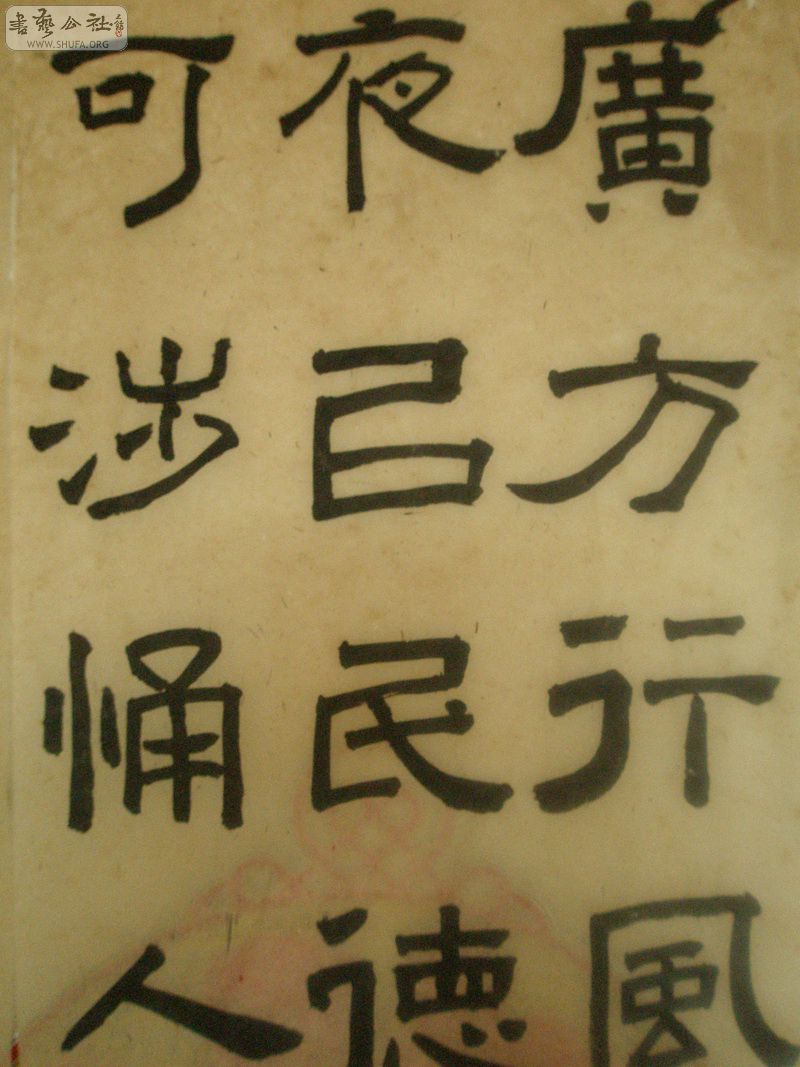 書藝公社
WWW.SHUFA.ORG
廣方行風
夜已民德
可涉恿人